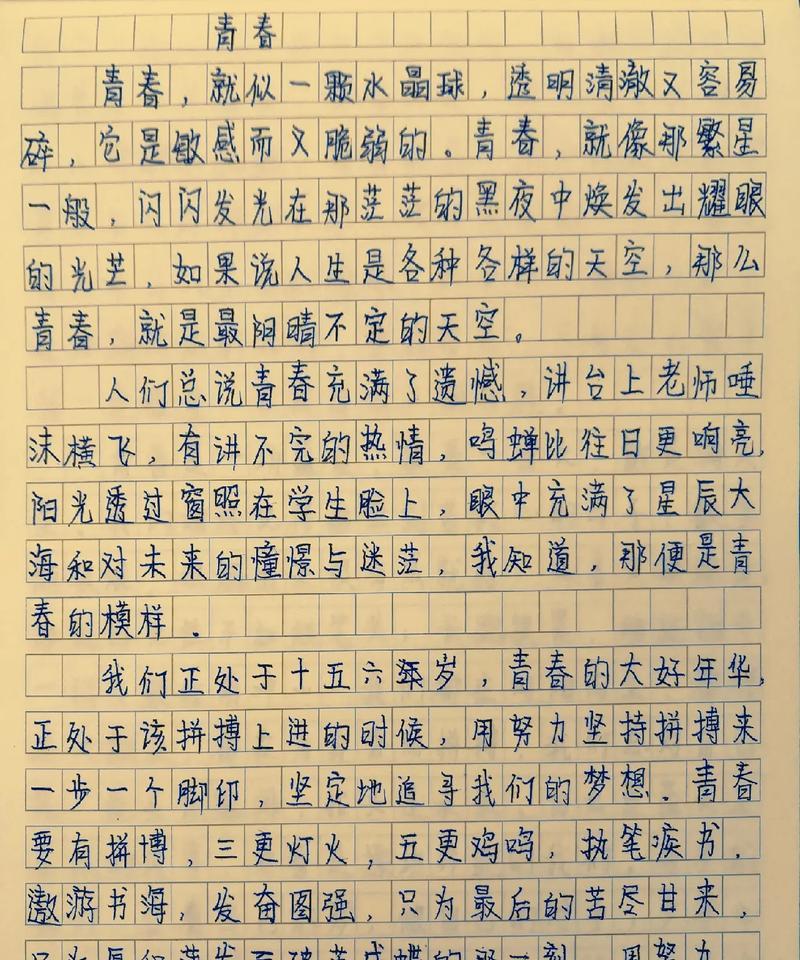 青春
青春，就似一颗水晶球，透明清澈又容易
碎，它是敏感而又脆弱的。青春，就像那繁星
一般，闪闪发光在那茫茫的黑夜中焕发出耀眼
的光芒，如果说人生是各种各样的天空，那么
青春，就是最阴晴不定的天空。
人们总说青春充满了遗憾，讲台上老师唾
沫横飞，有讲不完的热情，鸣蝉比往日更响亮，
阳光透过窗照在学生脸上，眼中充满了星辰大
海和对未来的憧憬与迷茫，我知道，那便是青
春的模样．
我们正处于十五六年岁，青春的大好年华，
正处于该拼搏上进的时候，用努力坚持拼搏来
一步一个脚印，坚定地追寻我们的梦想．青春
要有拼博，三更灯火，五更鸡鸣，执笔疾书．
遨游书海，发奋图强，只为最后的苦尽甘来，
那一刻 用努力